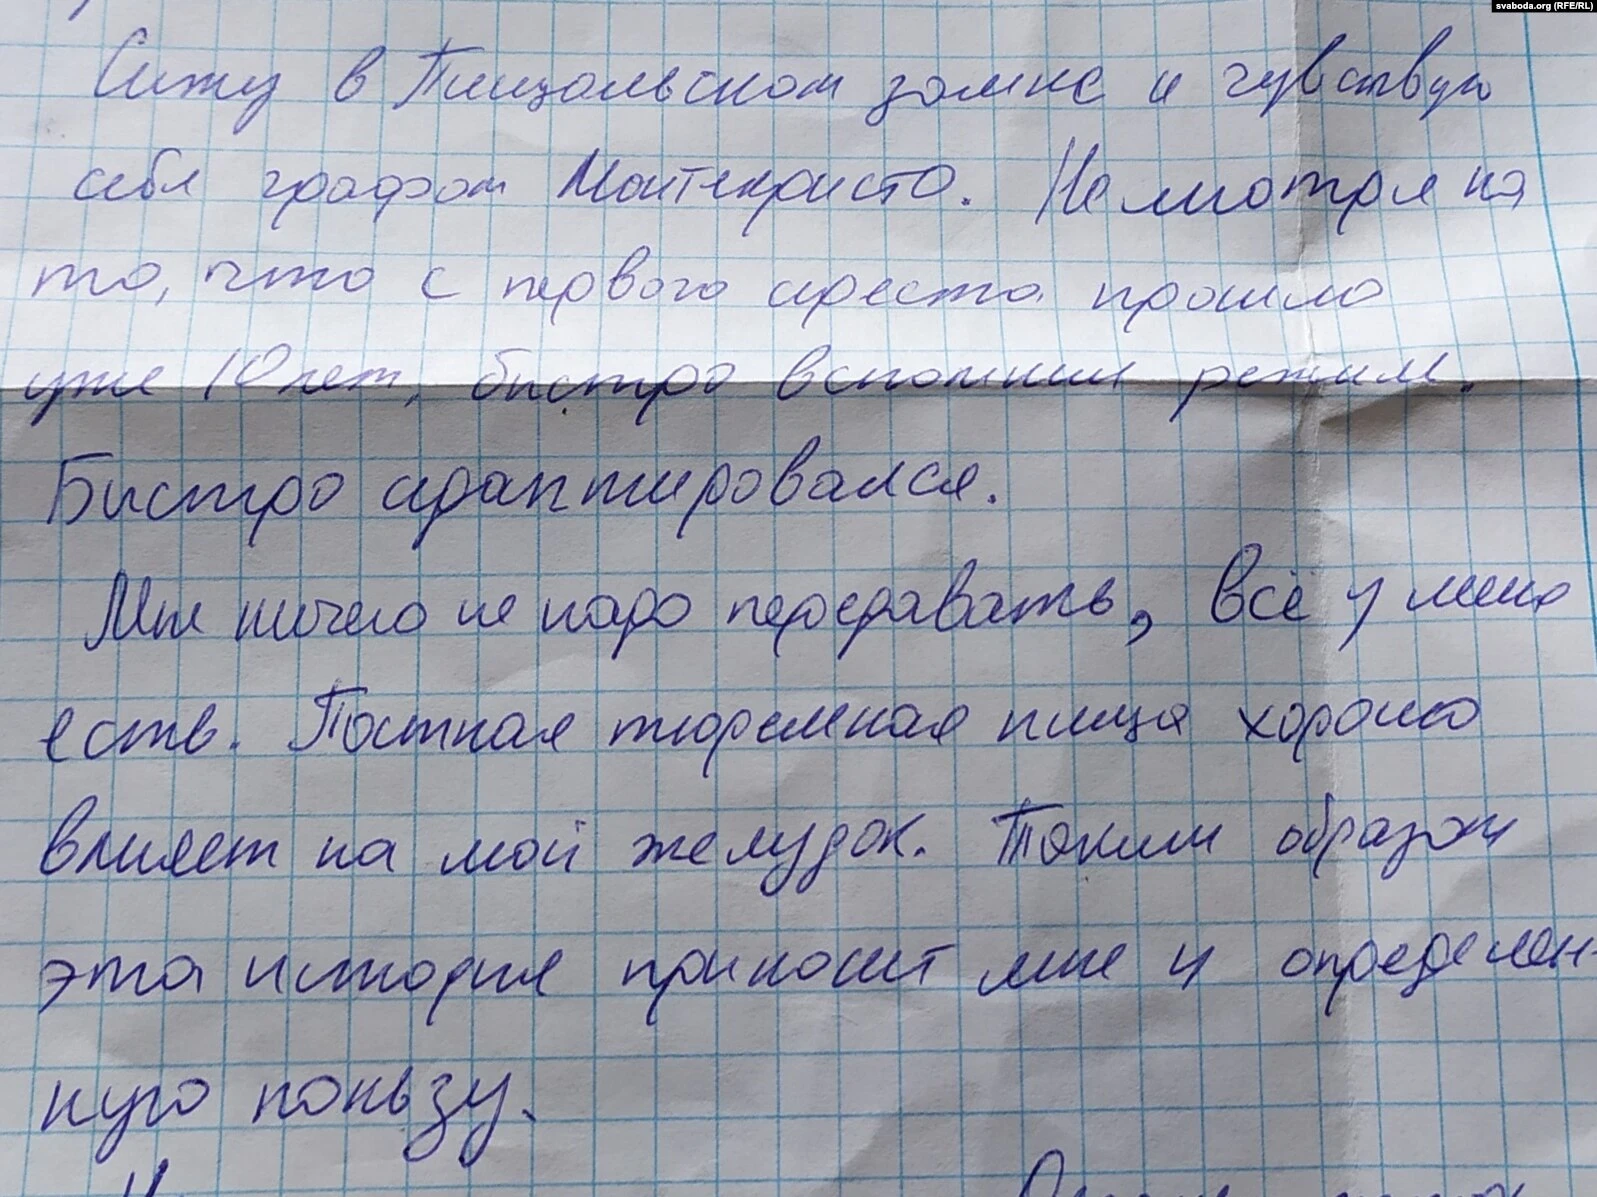 svaboda.org (RFE/RL)
Сижу в Пищаловском замке и чувствую
себя графом Монтекристо. Несмотря на
то, что с первого ареста прошло
уже 10 лет, быстро вспомнил режим.
Быстро адаптировался.
Мне ничего не надо передавать, всё у меня
есть. Постная тюремная пища хорошо
влияет на мой желудок. Таким образом
эта история приносит мне и определен-
ную пользу.